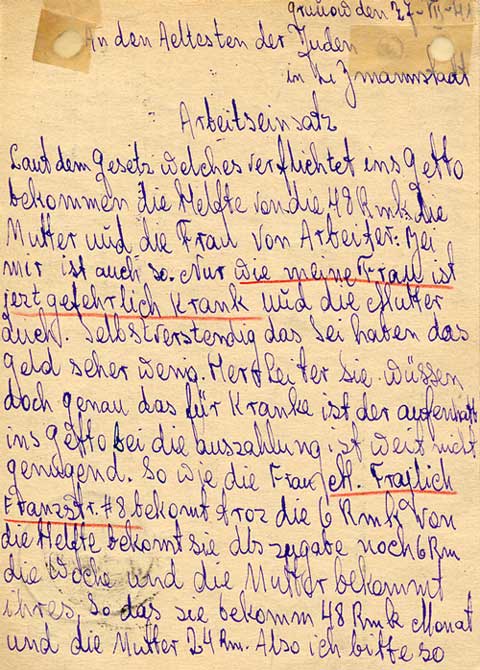 Grunow den 27-III-41
An den Aeltesten der Juden
in Litzmannstadt
Arbeitseinsatz
Laut dem Gesetz welches verflichtet ins Getto
bekommen die Helfte von die 48 Rmk die
Mutter und die Frau von Arbeiter. Bei
mir ist auch so. Nur wie meine Frau ist
jezt gefehrlich Krank und die Mutter
auch. Selbstverstendig das Sei haben das
Geld seher wenig. Herr Leiter Sie wüssen
doch genau das für Kranke ist der aufenhatt
ins Getto bei die auszahlung ist weit nicht
genugend. So wie die Frau M. Frajlich
Franzstr. #8 bekomt troz die 6 Rmk von
die Helfte bekomt sie als zugabe noch 6 Rm
die Woche und die Mutter bekommt
ihres, So das sie bekomm 48 Rmk Monat
und die Mutter 24 Rm. Also ich bitte so